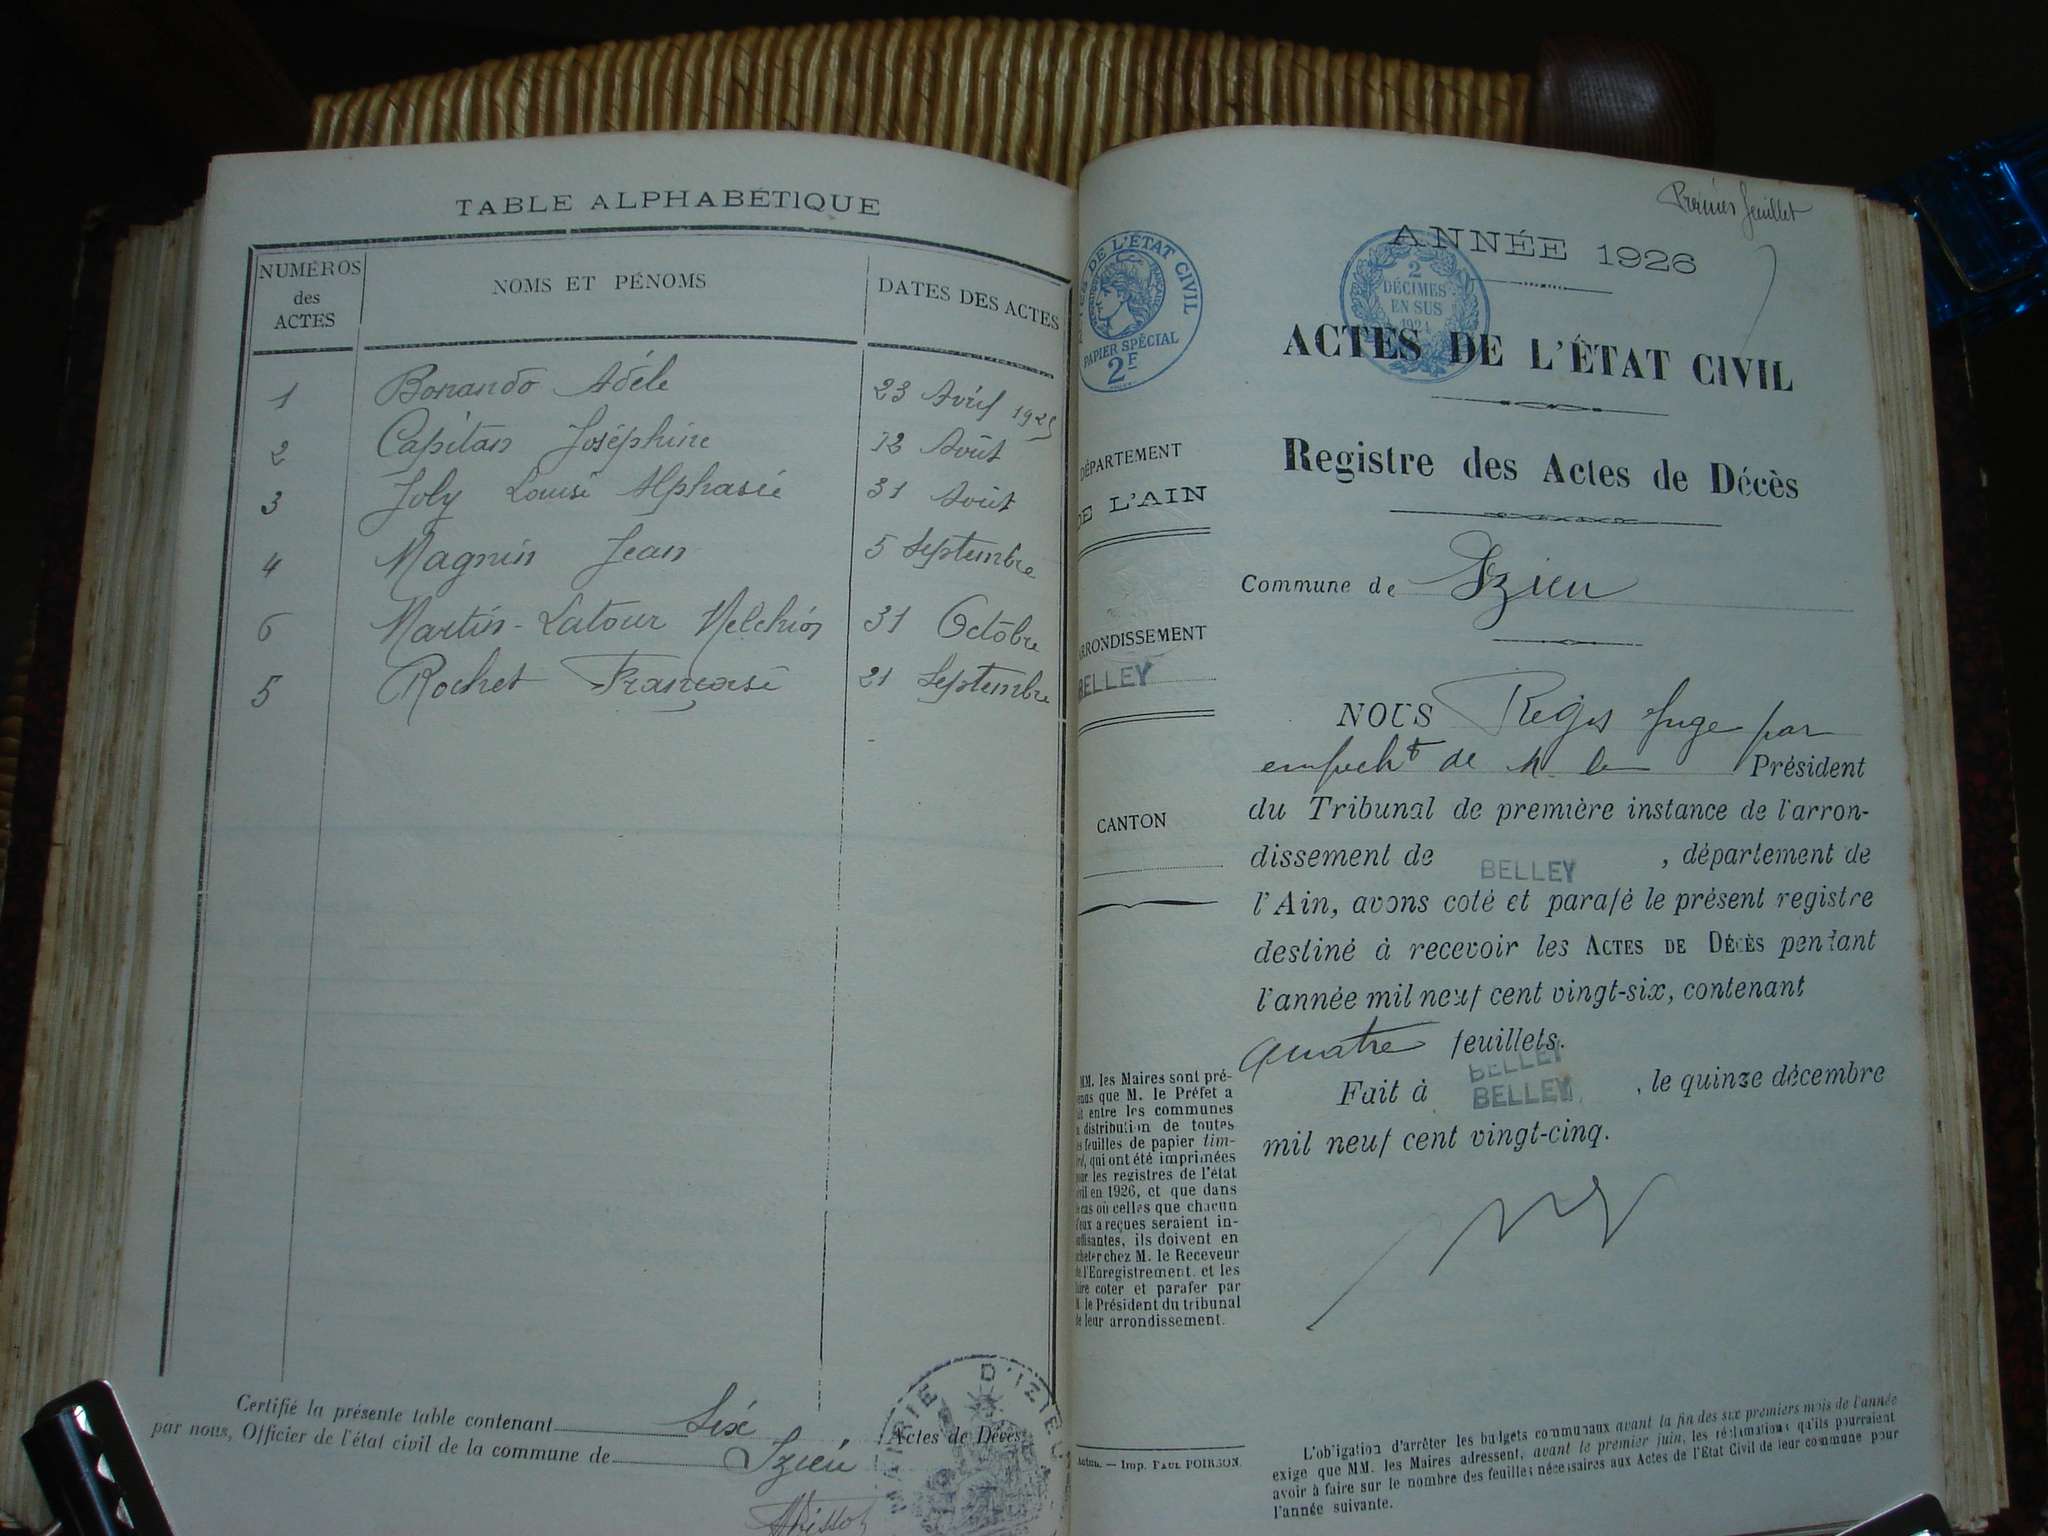 TABLE ALPHABÉTIQUE
NUMÉROS des ACTES
NOMS ET PÉNOMS
DATES DES ACTES
1 Bonando Adéle 23 Avril 1925
2 Capitan Joséphine 12 Août
3 Joly Louise Alphasie 31 Août
4 Magnin Jean 5 Septembre
6 Martin-Latour Melchior 31 Octobre
5 Rochet Françoise 21 Septembre
Certifié la présente table contenant Six Actes de Décès
par nous, Officier de l'état civil de la commune de Izieu
MAIRIE D'IZIEU
Premier feuillet
ANNÉE 1926
DE L'ÉTAT CIVIL
PAPIER SPÉCIAL
2F
2
DÉCIMES
EN SUS
1924
ACTES DE L'ÉTAT CIVIL
Registre des Actes de Décès
Commune de Izieu
DÉPARTEMENT
DE L'AIN
ARRONDISSEMENT
BELLEY
CANTON
NOUS Régis Juge par
empecht de M. le Président
du Tribunal de première instance de l'arron-
dissement de BELLEY, département de
l'Ain, avons coté et parafé le présent registre
destiné à recevoir les ACTES DE DÉCÈS pendant
l'année mil neuf cent vingt-six, contenant
quatre feuillets.
BELLEY
Fait à BELLEY, le quinze décembre
mil neuf cent vingt-cinq.
MM. les Maires sont pré-
venus que M. le Préfet a
fait entre les communes
la distribution de toutes
les feuilles de papier tim-
bré, qui ont été imprimées
pour les registres de l'état
civil en 1926, et que dans
le cas où celles que chacun
d'eux a reçues seraient in-
suffisantes, ils doivent en
acheter chez M. le Receveur
de l'Enregistrement, et les
faire coter et parafer par
M. le Président du tribunal
de leur arrondissement.
Imp. PAUL POIRSON.
L'obligation d'arrêter les budgets communaux avant la fin des six premiers mois de l'année
exige que MM. les Maires adressent, avant le premier juin, les réclamations qu'ils pourraient
avoir à faire sur le nombre des feuilles nécessaires aux Actes de l'Etat Civil de leur commune pour
l'année suivante.